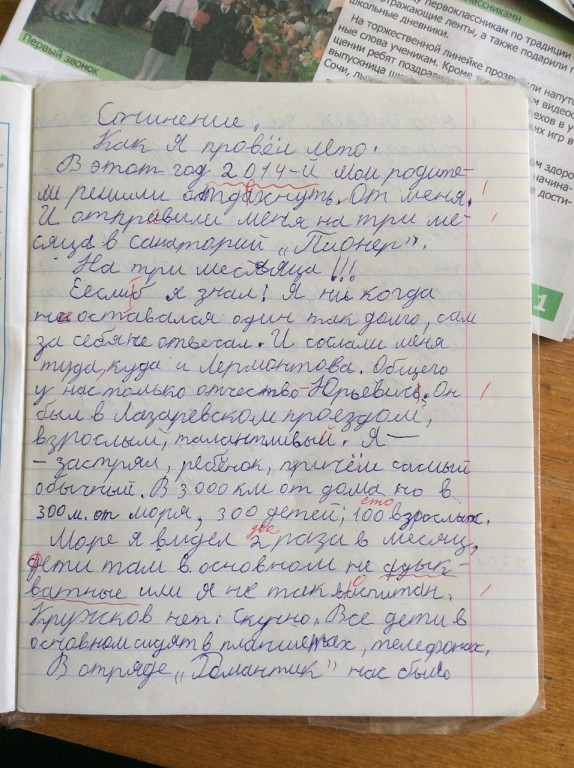 Первый звонок
классниками
му первоклассникам по традиции
отражающие ленты, а также подарили
школьные дневники.
На торжественной линейке прозвучали напутс
ные слова ученикам. Кроме то
щении ребят поздравила
выпускница
Сочи,
1
Сочинение.
Как я провёл лето.
В этот год 2014-й мои родите-
ли решили отдахнуть. От меня.
И отправили меня на три ме-
сяца в санаторий „Пионер".
На три месяца!!!
Еслиб я знал! Я ни когда
не оставался один так долго, сам
за себя не отвечал. И сослали меня
туда, куда и Лермонтова. Общего
у нас только отчество-Юрьевич. Он
был в Лазаревском проездом,
взрослый, талантливый. Я —
- застрял, ребёнок, причём самый
обычный. В 3000 км от дома но в
сто
300 м. от моря, 300 детей; 100 взрослых.
два
Море я видел 2 раза в месяц,
Дети там в основном не адык-
ватные или я не так воспитан.
Кружков нет: Скучно. Все дети в
основном сидят в планшетах, телефонах.
В отряде „Романтик" нас было